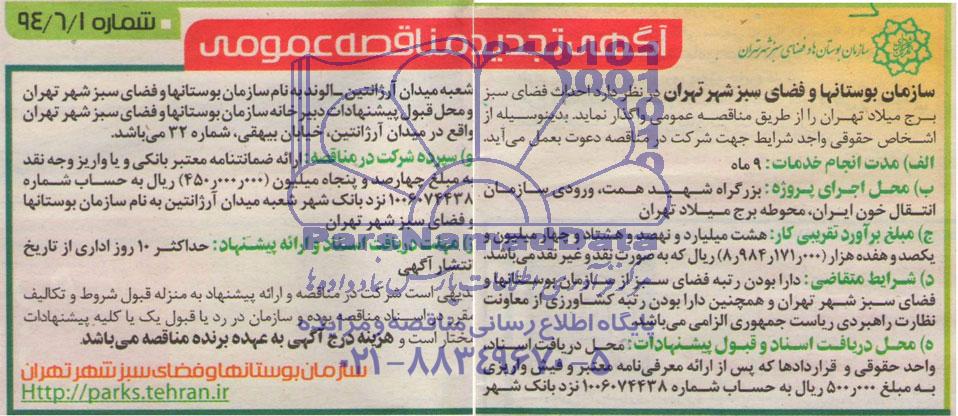 شماره ۹۴/۶/۱
آگهی تجدید مناقصه عمومی
سازمان بوستان‌ها و فضای سبز شهر تهران
سازمان بوستانها و فضای سبز شهر تهران در نظر دارد احداث فضای سبز
برج میلاد تهران را از طریق مناقصه عمومی واگذار نماید. بدینوسیله از
اشخاص حقوقی واجد شرایط جهت شرکت در مناقصه دعوت بعمل می‌آید.
الف) مدت انجام خدمات: ۹ ماه
ب) محل اجرای پروژه: بزرگراه شهید همت، ورودی سازمان
انتقال خون ایران، محوطه برج میلاد تهران
ج) مبلغ برآورد تقریبی کار: هشت میلیارد و نهصد و هشتاد و چهار میلیون و
یکصد و هفده هزار (۸٫۹۸۴٫۱۷۱٫۰۰۰) ریال که به صورت نقد و غیر نقد می‌باشد.
د) شرایط متقاضی: دارا بودن رتبه فضای سبز از سازمان بوستانها و
فضای سبز شهر تهران و همچنین دارا بودن رتبه کشاورزی از معاونت
نظارت راهبردی ریاست جمهوری الزامی می‌باشد.
ه) محل دریافت اسناد و قبول پیشنهادات: محل دریافت اسناد
واحد حقوقی و قراردادها که پس از ارائه معرفی‌نامه معتبر و فیش واریزی
به مبلغ ۵۰۰٫۰۰۰ ریال به حساب شماره ۱۰۰۶۰۷۴۴۳۸ نزد بانک شهر
شعبه میدان آرژانتین ـ الوند به نام سازمان بوستانها و فضای سبز شهر تهران
و محل قبول پیشنهادات دبیرخانه سازمان بوستانها و فضای سبز شهر تهران
واقع در میدان آرژانتین، خیابان بیهقی، شماره ۳۲ می‌باشد.
و) سپرده شرکت در مناقصه: ارائه ضمانتنامه معتبر بانکی و یا واریز وجه نقد
به مبلغ چهارصد و پنجاه میلیون (۴۵۰٫۰۰۰٫۰۰۰) ریال به حساب شماره
۱۰۰۶۰۷۴۴۳۸ نزد بانک شهر شعبه میدان آرژانتین به نام سازمان بوستانها
و فضای سبز شهر تهران
ز) مهلت دریافت اسناد و ارائه پیشنهاد: حداکثر ۱۰ روز اداری از تاریخ
انتشار آگهی
بدیهی است شرکت در مناقصه و ارائه پیشنهاد به منزله قبول شروط و تکالیف
مقرر در اسناد مناقصه بوده و سازمان در رد یا قبول یک یا کلیه پیشنهادات
مختار است و هزینه درج آگهی به عهده برنده مناقصه می‌باشد.
سازمان بوستانها و فضای سبز شهر تهران
Http://parks.tehran.ir
ParsNamadData
پایگاه اطلاع رسانی مناقصه و مزایده
۰۲۱-۸۸۳۴۹۶۷۰-۵